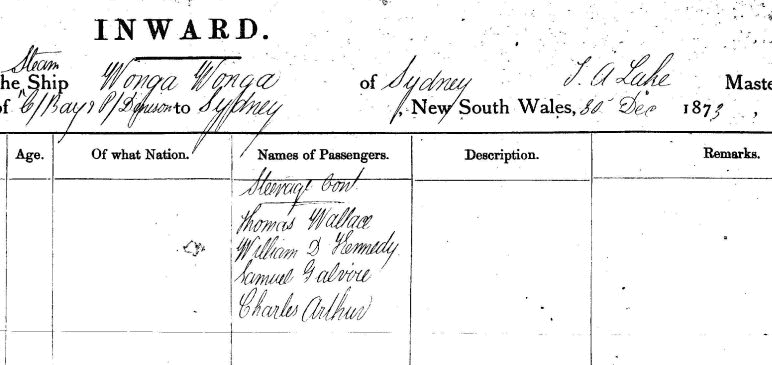 INWARD.
Steam
he Ship Wonga Wonga of Sydney J. A Lake Maste
of C/Bay & P/Denison to Sydney, New South Wales, 30 Dec 1873,
Age. Of what Nation. Names of Passengers. Description. Remarks.
Steerage Cont
Thomas Wallace
William D Kennedy
Samuel
Charles Arthur